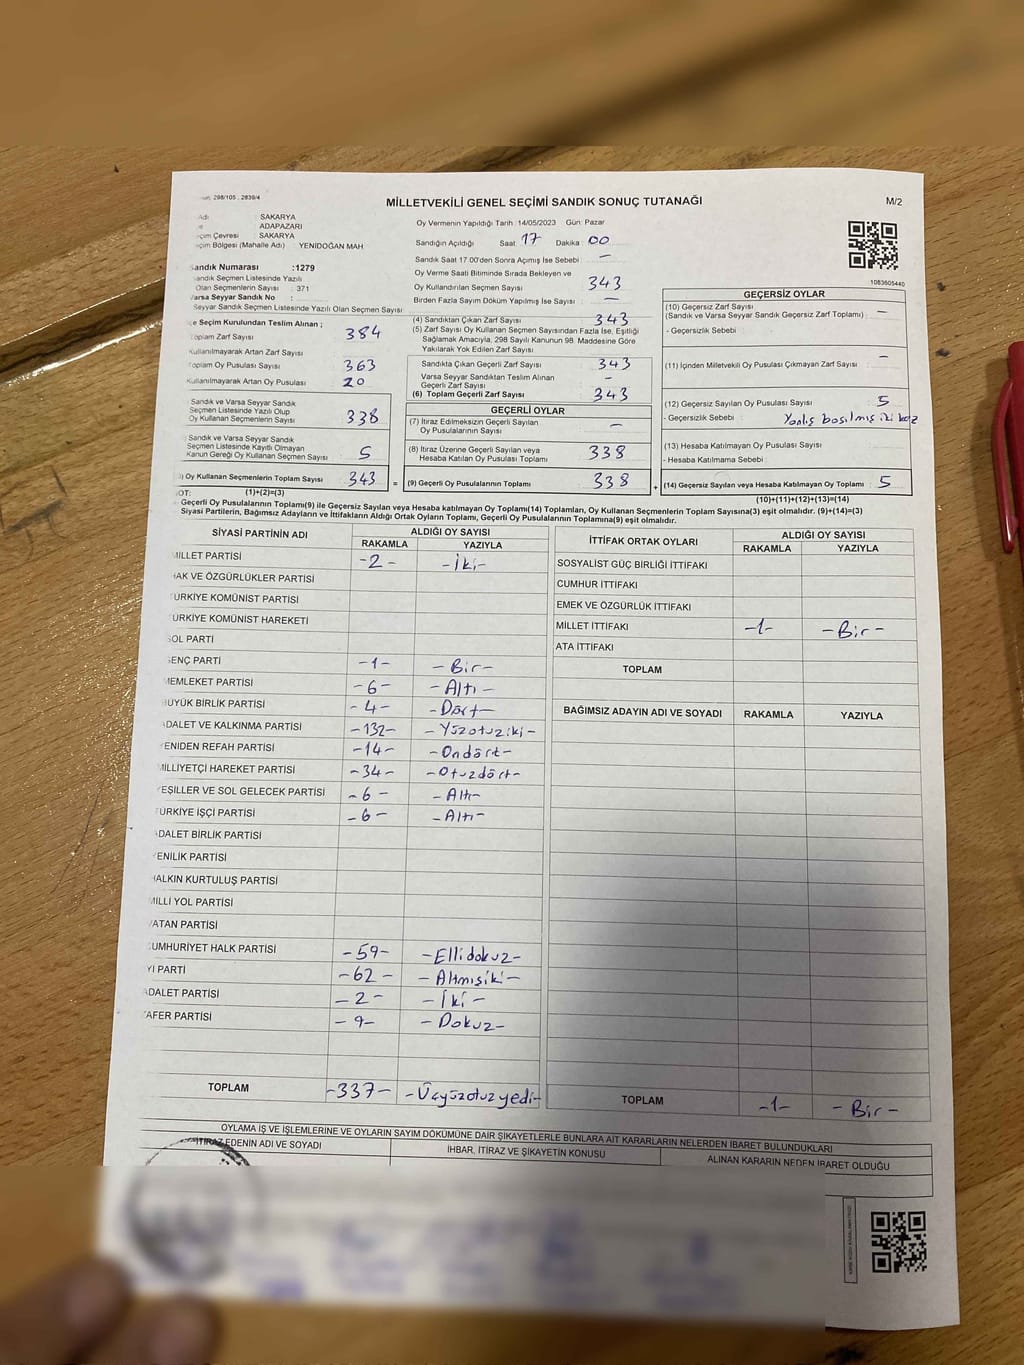 298/105 , 2839/4
MİLLETVEKİLİ GENEL SEÇİMİ SANDIK SONUÇ TUTANAĞI
M/2
Adı : SAKARYA
: ADAPAZARI
Çevresi : SAKARYA
Bölgesi (Mahalle Adı) YENİDOĞAN MAH
Sandık Numarası :1279
Sandık Seçmen Listesinde Yazılı
Olan Seçmenlerin Sayısı : 371
Varsa Seyyar Sandık No :
Seyyar Sandık Seçmen Listesinde Yazılı Olan Seçmen Sayısı
Oy Vermenin Yapıldığı Tarih :14/05/2023 Gün: Pazar
Sandığın Açıldığı Saat 17 Dakika 00
Sandık Saat 17.00'den Sonra Açımış İse Sebebi : —
Oy Verme Saati Bitiminde Sırada Bekleyen ve
Oy Kullandırılan Seçmen Sayısı : 343
Birden Fazla Sayım Döküm Yapılmış İse Sayısı : —
1083605440
Seçim Kurulundan Teslim Alınan ;
Toplam Zarf Sayısı 384
Kullanılmayarak Artan Zarf Sayısı
Toplam Oy Pusulası Sayısı 363
Kullanılmayarak Artan Oy Pusulası 20
Sandık ve Varsa Seyyar Sandık
Seçmen Listesinde Yazılı Olup
Oy Kullanan Seçmenlerin Sayısı 338
Sandık ve Varsa Seyyar Sandık
Seçmen Listesinde Kayıtlı Olmayan
Kanun Gereği Oy Kullanan Seçmen Sayısı 5
) Oy Kullanan Seçmenlerin Toplam Sayısı 343 =
(1)+(2)=(3)
(4) Sandıktan Çıkan Zarf Sayısı 343
(5) Zarf Sayısı Oy Kullanan Seçmen Sayısından Fazla İse, Eşitliği
Sağlamak Amacıyla, 298 Sayılı Kanunun 98. Maddesine Göre
Yakılarak Yok Edilen Zarf Sayısı
Sandıkta Çıkan Geçerli Zarf Sayısı 343
Varsa Seyyar Sandıktan Teslim Alınan
Geçerli Zarf Sayısı —
(6) Toplam Geçerli Zarf Sayısı 343
GEÇERLİ OYLAR
(7) İtiraz Edilmeksizin Geçerli Sayılan
Oy Pusulalarının Sayısı —
(8) İtiraz Üzerine Geçerli Sayılan veya
Hesaba Katılan Oy Pusulası Toplamı 338
(9) Geçerli Oy Pusulalarının Toplamı 338 +
GEÇERSİZ OYLAR
(10) Geçersiz Zarf Sayısı
(Sandık ve Varsa Seyyar Sandık Geçersiz Zarf Toplamı) : —
- Geçersizlik Sebebi :
(11) İçinden Milletvekili Oy Pusulası Çıkmayan Zarf Sayısı : —
(12) Geçersiz Sayılan Oy Pusulası Sayısı : 5
- Geçersizlik Sebebi : Yanlış basılmış iki kez
(13) Hesaba Katılmayan Oy Pusulası Sayısı :
- Hesaba Katılmama Sebebi :
(14) Geçersiz Sayılan veya Hesaba Katılmayan Oy Toplamı : 5
(10)+(11)+(12)+(13)=(14)
NOT:
Geçerli Oy Pusulalarının Toplamı(9) ile Geçersiz Sayılan veya Hesaba katılmayan Oy Toplamı(14) Toplamları, Oy Kullanan Seçmenlerin Toplam Sayısına(3) eşit olmalıdır. (9)+(14)=(3)
Siyasi Partilerin, Bağımsız Adayların ve İttifakların Aldığı Ortak Oyların Toplamı, Geçerli Oy Pusulalarının Toplamına(9) eşit olmalıdır.
SİYASİ PARTİNİN ADI ALDIĞI OY SAYISI
RAKAMLA YAZIYLA
MİLLET PARTİSİ -2- -İki-
HAK VE ÖZGÜRLÜKLER PARTİSİ
TÜRKİYE KOMÜNİST PARTİSİ
TÜRKİYE KOMÜNİST HAREKETİ
SOL PARTİ
GENÇ PARTİ -1- -Bir-
MEMLEKET PARTİSİ -6- -Altı-
BÜYÜK BİRLİK PARTİSİ -4- -Dört-
ADALET VE KALKINMA PARTİSİ -132- -Yüzotuziki-
YENİDEN REFAH PARTİSİ -14- -Ondört-
MİLLİYETÇİ HAREKET PARTİSİ -34- -Otuzdört-
YEŞİLLER VE SOL GELECEK PARTİSİ -6- -Altı-
TÜRKİYE İŞÇİ PARTİSİ -6- -Altı-
ADALET BİRLİK PARTİSİ
YENİLİK PARTİSİ
HALKIN KURTULUŞ PARTİSİ
MİLLİ YOL PARTİSİ
VATAN PARTİSİ
CUMHURİYET HALK PARTİSİ -59- -Ellidokuz-
İYİ PARTİ -62- -Altmışiki-
ADALET PARTİSİ -2- -İki-
ZAFER PARTİSİ -9- -Dokuz-
TOPLAM -337- -Üçyüzotuzyedi-
İTTİFAK ORTAK OYLARI ALDIĞI OY SAYISI
RAKAMLA YAZIYLA
SOSYALİST GÜÇ BİRLİĞİ İTTİFAKI
CUMHUR İTTİFAKI
EMEK VE ÖZGÜRLÜK İTTİFAKI
MİLLET İTTİFAKI -1- -Bir-
ATA İTTİFAKI
TOPLAM
BAĞIMSIZ ADAYIN ADI VE SOYADI RAKAMLA YAZIYLA
TOPLAM -1- -Bir-
OYLAMA İŞ VE İŞLEMLERİNE VE OYLARIN SAYIM DÖKÜMÜNE DAİR ŞİKAYETLERLE BUNLARA AİT KARARLARIN NELERDEN İBARET BULUNDUKLARI
İTİRAZ EDENİN ADI VE SOYADI İHBAR, İTİRAZ VE ŞİKAYETİN KONUSU ALINAN KARARIN NEDEN İBARET OLDUĞU